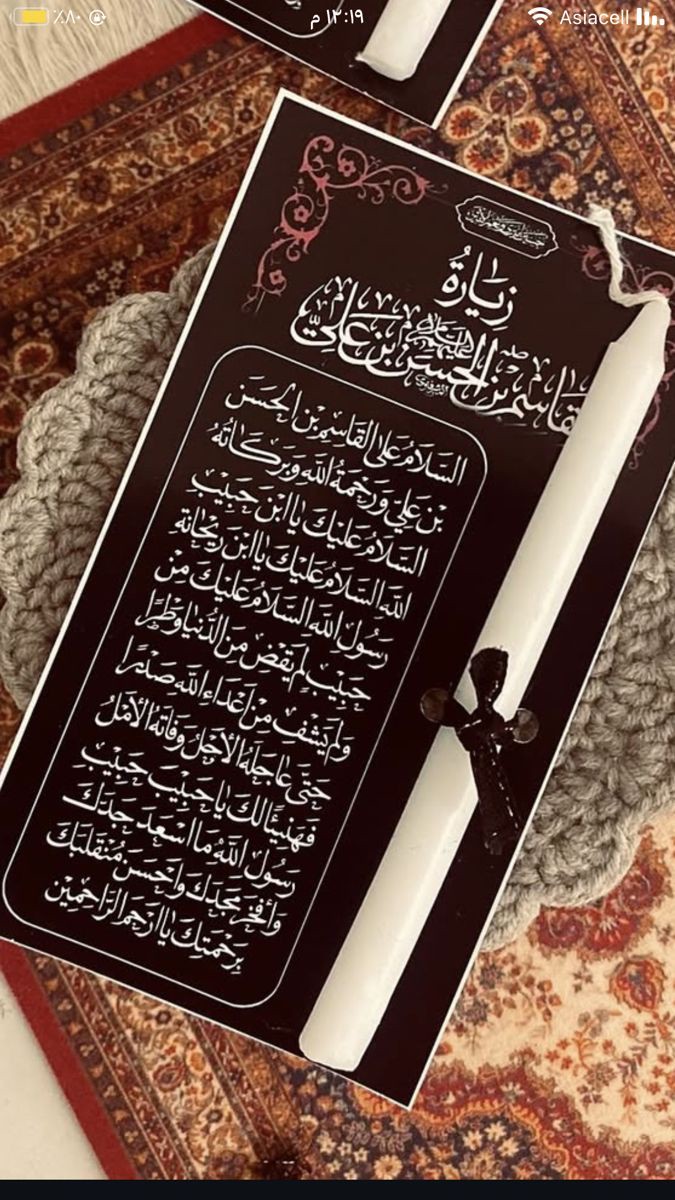 ٪٨٠
١٢:١٩ م
Asiacell
زِيَارَةُ
القاسِم بن الحسَن بن عَليّ
عليهم السلام
السَّلَامُ عَلى القَاسِمِ بْنِ الحَسَنِ
بْنِ عَلِيٍّ وَرَحْمَةُ اللهِ وَبَرَكَاتُهُ
السَّلَامُ عَلَيْكَ يَا ابْنَ حَبِيبِ
اللهِ السَّلَامُ عَلَيْكَ يَا ابْنَ رَيْحَانَةِ
رَسُولِ اللهِ السَّلَامُ عَلَيْكَ مِنْ
حَبِيبٍ لَمْ يَقْضِ مِنَ الدُّنْيَا وَطَرًا
وَلَمْ يَشْفِ مِنْ أَعْدَاءِ اللهِ صَدْرًا
حَتّى عَاجَلَهُ الأَجَلُ وَفَاتَهُ الأَمَلُ
فَهَنِيئًا لَكَ يَا حَبِيبَ حَبِيبِ
رَسُولِ اللهِ مَا أَسْعَدَ جَدَّكَ
وَأَفْخَرَ مَجْدَكَ وَأَحْسَنَ مُنْقَلَبَكَ
بِرَحْمَتِكَ يَا أَرْحَمَ الرَّاحِمِين